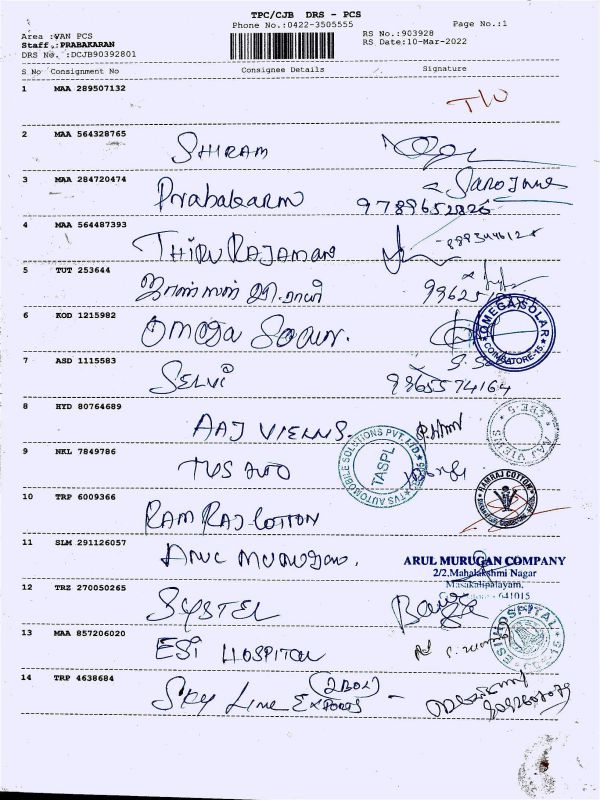 TPC/CJB DRS - PCS
Phone No.:0422-3505555
Page No.:1
Area :VAN PCS
RS No.:903928
Staff :PRABAKARAN
RS Date:10-Mar-2022
DRS No. :DCJB90392801
S No Consignment No Consignee Details Signature
1 MAA 289507132
2 MAA 564328765 SHIRAM
3 MAA 284720474 Prabakaran
9789652826
4 MAA 564487393 THIRU RAJAMANI
5 TUT 253644
6 KOD 1215982 OMEGA
OMEGA SOLAR COIMBATORE-15
7 ASD 1115583 SELVI 9865574164
8 HYD 80764689 AAJ
9 NKL 7849786 TVS AUTO
TVS AUTOMOBILE SOLUTIONS PVT. LTD. TASPL
10 TRP 6009366 RAM RAJ COTTON
RAMRAJ COTTON
11 SLM 291126057 ARUL MURUGAN.
ARUL MURUGAN COMPANY
2/2,Mahalakshmi Nagar
Masakalipalayam,
- 641015
12 TRZ 270050265 SYSTEL
13 MAA 857206020 ESI HOSPITAL
ESI HOSPITAL
14 TRP 4638684 SKY LINE EXPORTS (2 BOX)